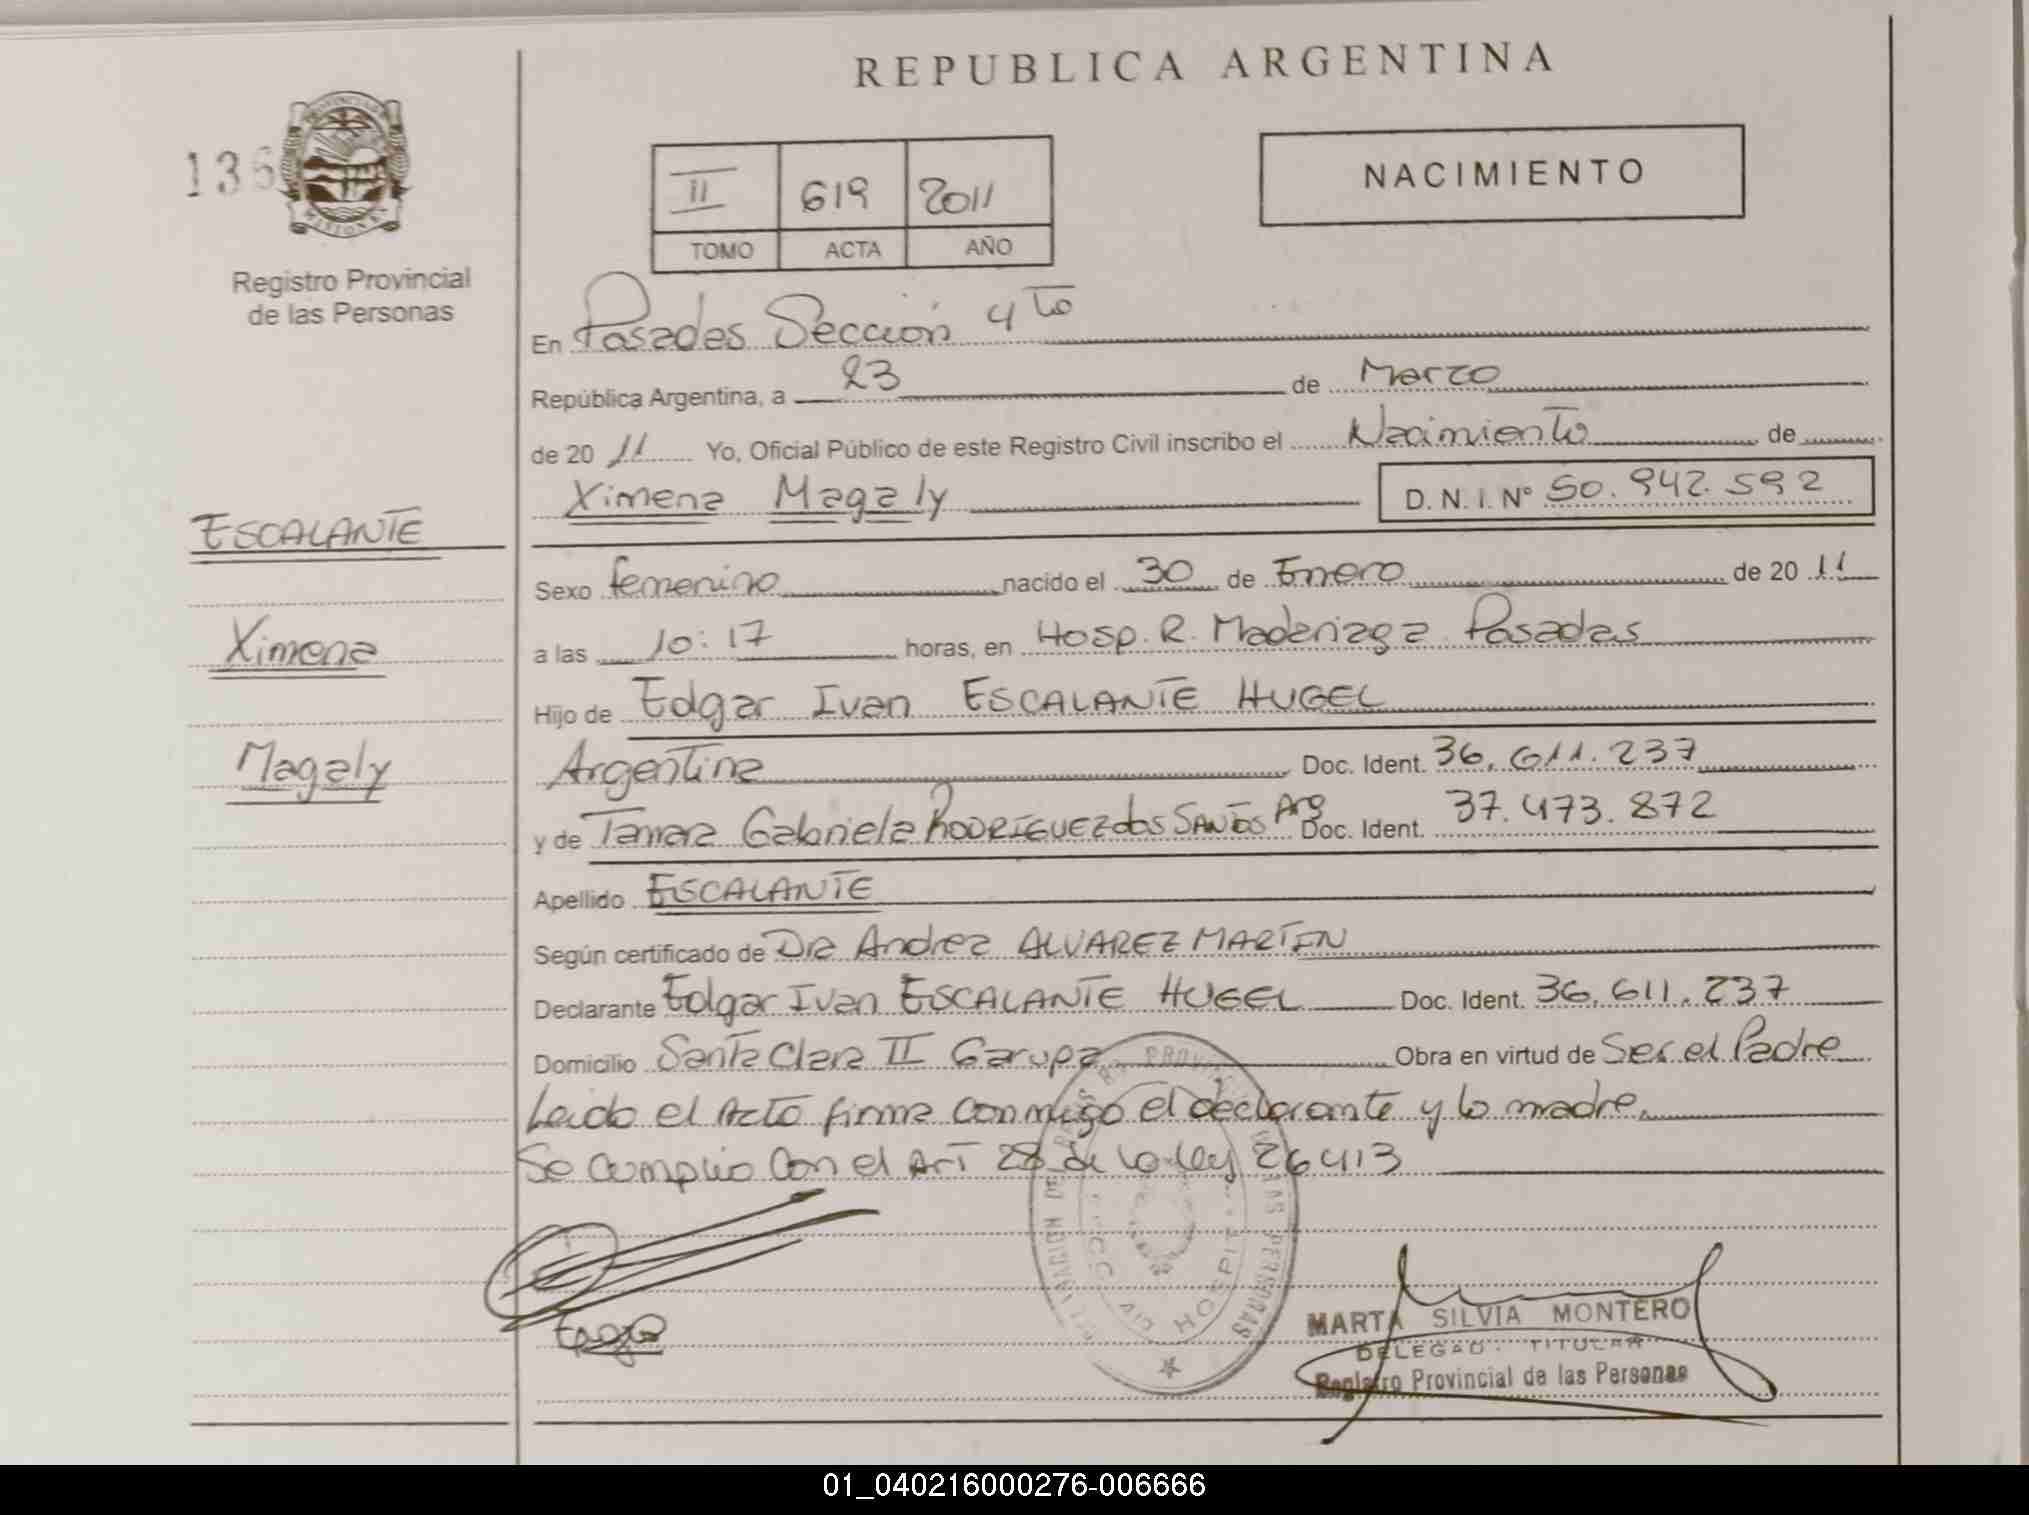 REPUBLICA ARGENTINA
136
PROVINCIA DE MISIONES
Registro Provincial
de las Personas
II 619 2011
TOMO ACTA AÑO
NACIMIENTO
En Posadas Sección 4to
República Argentina, a 23 de Marzo
de 2011 Yo, Oficial Público de este Registro Civil inscribo el Nacimiento de
Ximena Magaly D.N.I. N° 50.942.592
ESCALANTE
Ximena
Magaly
Sexo femenino nacido el 30 de Enero de 2011
a las 10:17 horas, en Hosp. R. Madariaga Posadas
Hijo de Edgar Ivan ESCALANTE HUGEL
Argentina Doc. Ident. 36.611.237
y de Tamara Gabriela RODRIGUEZ dos SANTOS Arg Doc. Ident. 37.473.872
Apellido ESCALANTE
Según certificado de Dra Andrea ALVAREZ MARTIN
Declarante Edgar Ivan ESCALANTE HUGEL Doc. Ident. 36.611.237
Domicilio Santa Clara II Garupa Obra en virtud de Ser el Padre
Leido el Acto firma conmigo el declarante y la madre.
Se cumplio con el Art 28 de la ley 26413
MARTA SILVIA MONTERO
DELEGAD. TITULAR
Registro Provincial de las Personas
01_040216000276-006666